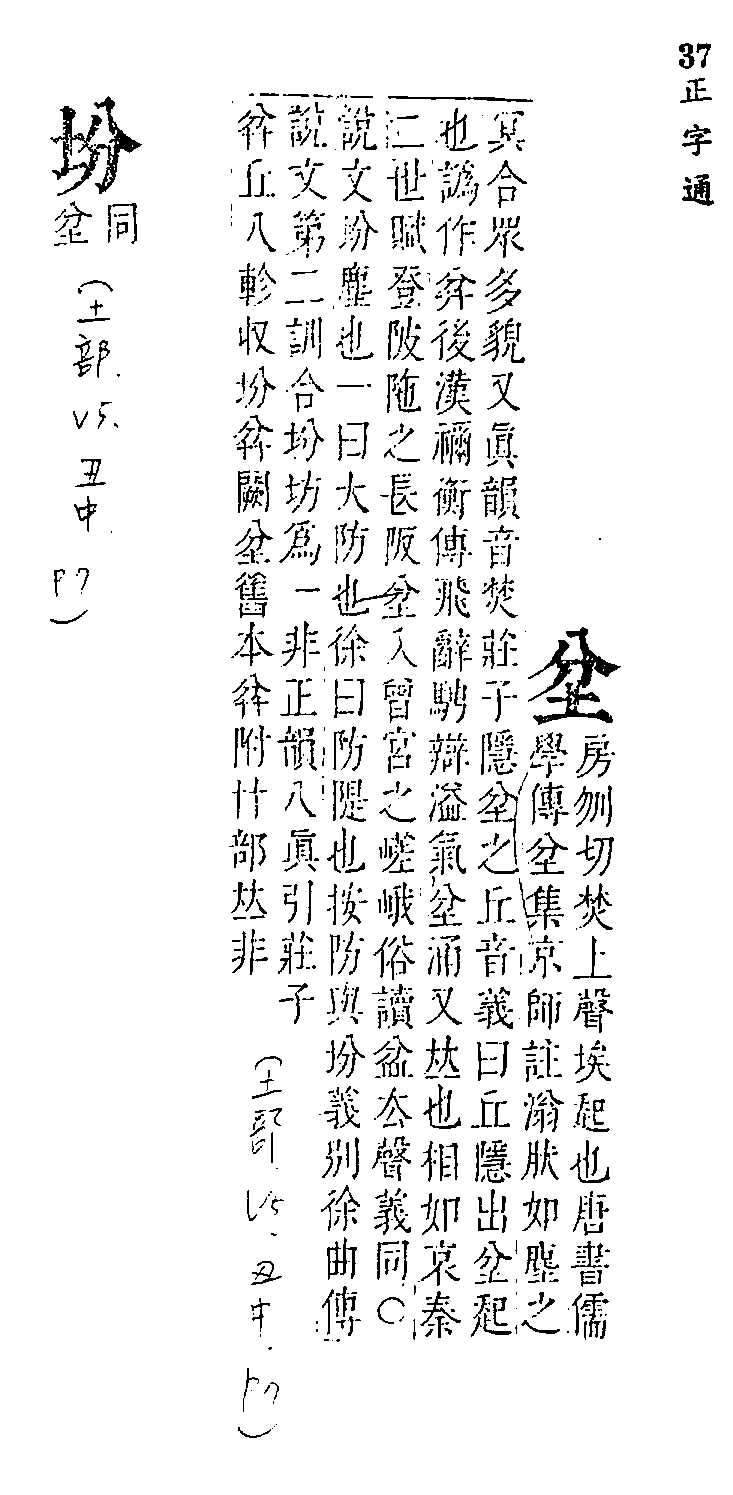 37 正字通
坌
房刎切焚上聲埃起也唐書儒
學傳坌集京師註滃狀如塵之
冥合眾多貌又眞韻音焚莊子隱坌之丘音義曰丘隱出坌起
也譌作弅後漢禰衡傳飛辭騁辯溢氣坌涌又𠀤也相如哀秦
二世賦登陂陁之長阪坌入曾宮之嵯峨俗讀盆去聲義同○
說文坋塵也一曰大防也徐曰防隄也按防與坋義別徐曲傅
說文第二訓合坋坊爲一非正韻八眞引莊子
弅丘八軫収坋弅闕坌舊本弅附廾部𠀤非
(土部.V5.丑中.P7)
坋
同
坌
(土部.V5.丑中.P7)